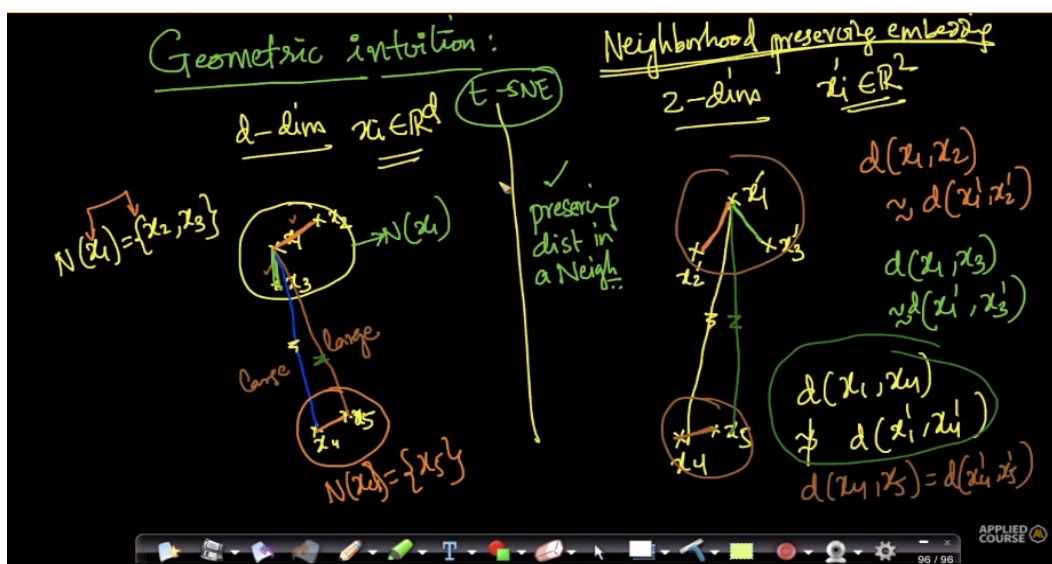 Geometric intuition :
t-SNE
Neighborhood preserving embedding
d-dims xi ∈ ℝᵈ
2-dims xi' ∈ ℝ²
N(x1)={x2,x3}
x1
x2
x3
→N(x1)
large
large
x4
x5
N(x4)={x5}
✓
preserving
dist in
a Neigh
x1'
x2'
x3'
x4
x5'
d(x1,x2)
≈ d(x1',x2')
d(x1,x3)
≈ d(x1',x3')
d(x1,x4)
≉ d(x1',x4')
d(x4,x5)=d(x4',x5')
APPLIED
COURSE
T
96 / 96